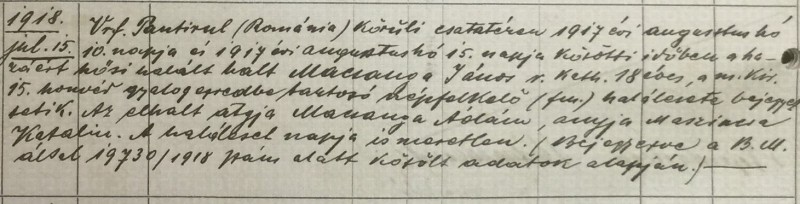 1918. Vrf. Pantirul (Románia) körüli csatatéren 1917 évi augusztus hó
jul. 15. 10. napja és 1917 évi augusztus hó 15. napja közötti időben a ha-
záért hősi halált halt Macsanga János r. kath. 18 éves, a m. kir.
15. honvéd gyalogezredbe tartozó népfelkelő (fm.) halálesete bejegyez-
tetik. Az elhalt atyja Macsanga Ádám, anyja
Katalin. A haláleset napja ismeretlen. (Bejegyezve a B. M.
által 19730/1918 szám alatt közölt adatok alapján.)